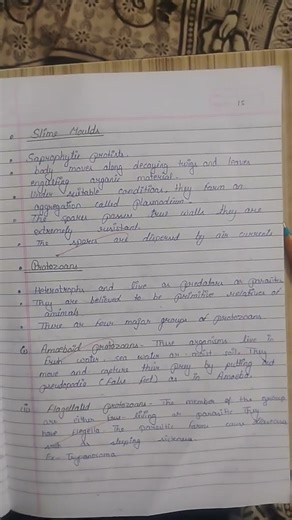 15
Slime Moulds
Saprophytic protists.
body moves along decaying twigs and leaves
engulfing organic material.
Under suitable conditions, they form an
aggregation called plasmodium.
The spores possess true walls they are
extremely resistant.
The spores are dispersed by air currents
Protozoans
Heterotrophs and live as predators or parasites
They are believed to be primitive relatives of
animals
There are four major groups of protozoans
(i) Amoeboid protozoans - These organisms live in
fresh water, sea water or moist soil. They
move and capture their prey by putting out
pseudopodia (False feet) as in Amoeba.
(ii) Flagellated protozoans - The member of the group
are either free living or parasitic. They
have flagella. The parasitic forms cause diseases
such as sleeping sickness.
Ex -